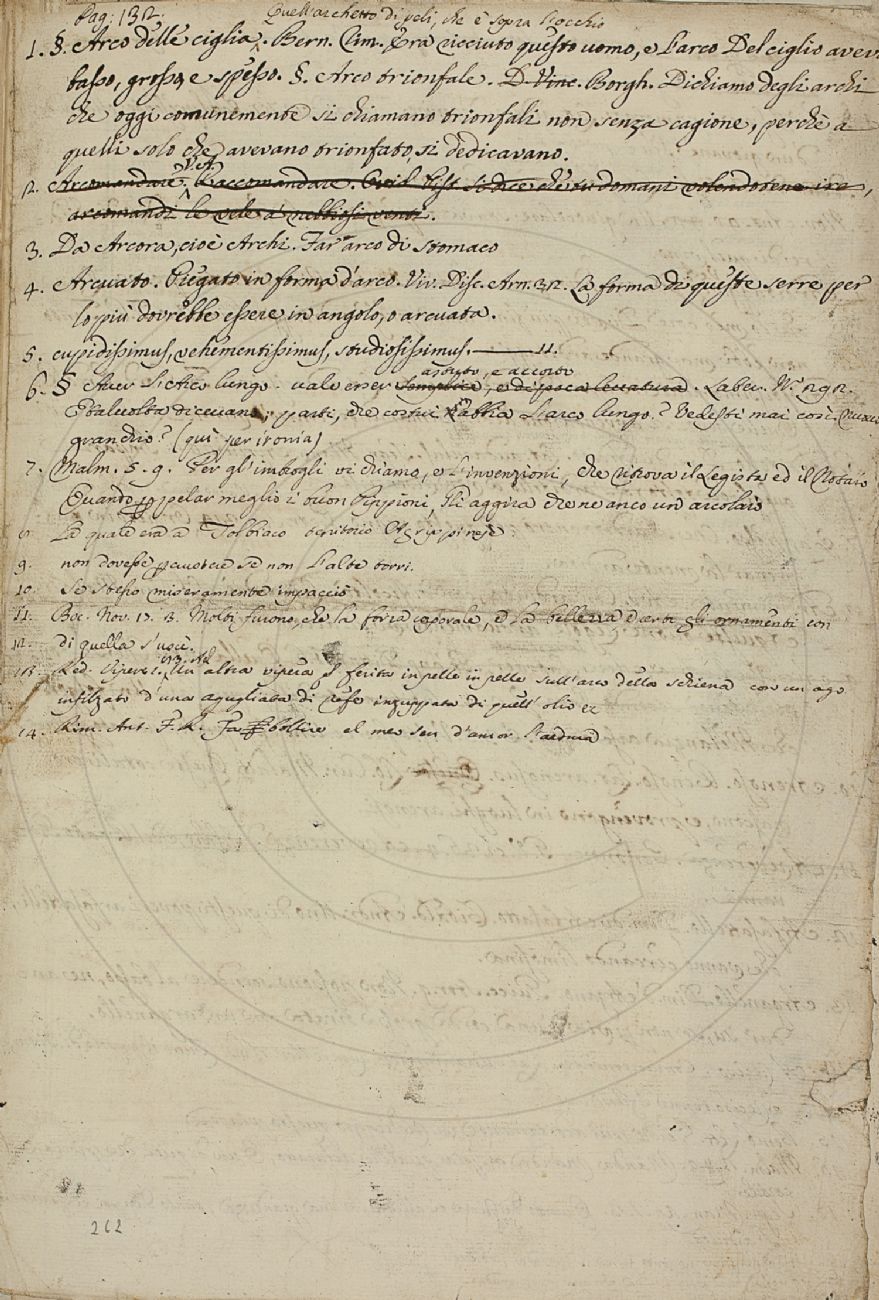 Pag: 132. Quell'archetto di peli, che è sopra l'occhio
1. §. Arco delle ciglia. Bern. Rim. Era ricciuto questo uomo, e l'arco Del ciglio avev
basso, grosso, e spesso. §. Arco trionfale. D. Vinc. Borgh. Dichiamo degli archi
che oggi comunemente si chiamano trionfali non senza cagione, perchè a
quelli solo che avevano trionfato, si dedicavano.
2. Arcomandare. Raccomandare. Ovid. Pist. Si dice che tu domani volendotene ire,
arcomandi le vele a' nebbiosi venti.
3. Da Arcora, cioè Archi. Far arco di stomaco
4. Arcuato. Piegato in forma d'arco. Viv. Disc. Arn. 32. La forma di queste serre per
lo più dovrebbe essere in angolo, o arcuata.
5. cupidissimus, vehementissimus, studiosissimus. — 11.
astuto, e accorto
6. § Aver l'Arco lungo. vale esser semplice, e di poca levatura. Laber. N. 292.
E talvolta dicevano; parti, che costui l'abbia l'arco lungo? Vedesti mai così
grandio? (qui per ironia)
7. Malm. 5. 9. Per gl'imbrogli vi chiamo, e l'invenzioni, che ritrova il Legista ed il Notaio
Quando per pelar meglio i buon pippioni, gli aggira che ne anco un arcolaio
8. La quale era a Tolbiaco territorio Agrippinese
9. non dovesse percuotere se non l'alte torri.
10. Se stesso miseramente impacciò
11. Boc. Nov. 17. 3. Molti furono, che la forza corporale, e la bellezza gli ornamenti con
12. di quella s'uscì.
13. Red. Vipere 1. Un'altra vipera ferita in pelle in pelle sull'arco della schiena con un ago
infilzato d'una agugliata di refe inzuppata di quell'olio ec
14. Rim. Ant. F. R. Fa bollire el meo sen d'amor l'ardura
262